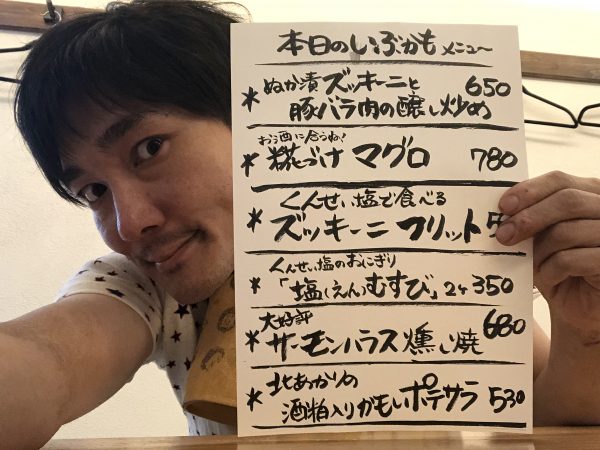 本日のいぶかもメニュー
＊ぬか漬ズッキーニと 650
豚バラ肉の醸し炒め
お酒に合うね!
＊糀づけ マグロ 780
くんせい塩で食べる
＊ズッキーニ フリット 5
くんせい塩のおにぎり
＊「塩(えん)むすび」2ケ 350
大好評
＊サーモンハラス燻し焼 680
＊北あかりの
酒粕入りかもいポテサラ 530